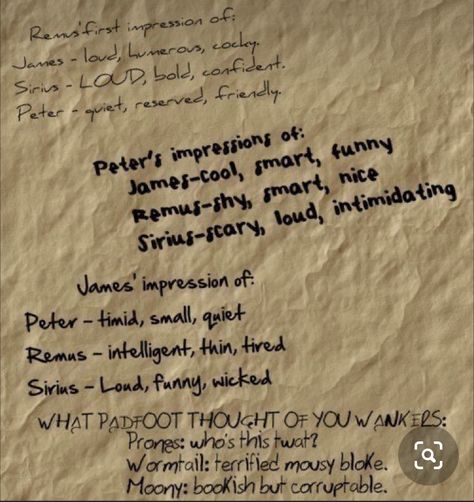 Remus' first impression of:
James - loud, humerous, cocky.
Sirius - LOUD, bold, confident.
Peter - quiet, reserved, friendly.
Peter's impressions of:
James-cool, smart, funny
Remus-shy, smart, nice
Sirius-scary, loud, intimidating
James' impression of:
Peter - timid, small, quiet
Remus - intelligent, thin, tired
Sirius - Loud, funny, wicked
WHAT PADFOOT THOUGHT OF YOU WANKERS:
Prongs: who's this twat?
Wormtail: terrified mousy bloke.
Moony: bookish but corruptable.